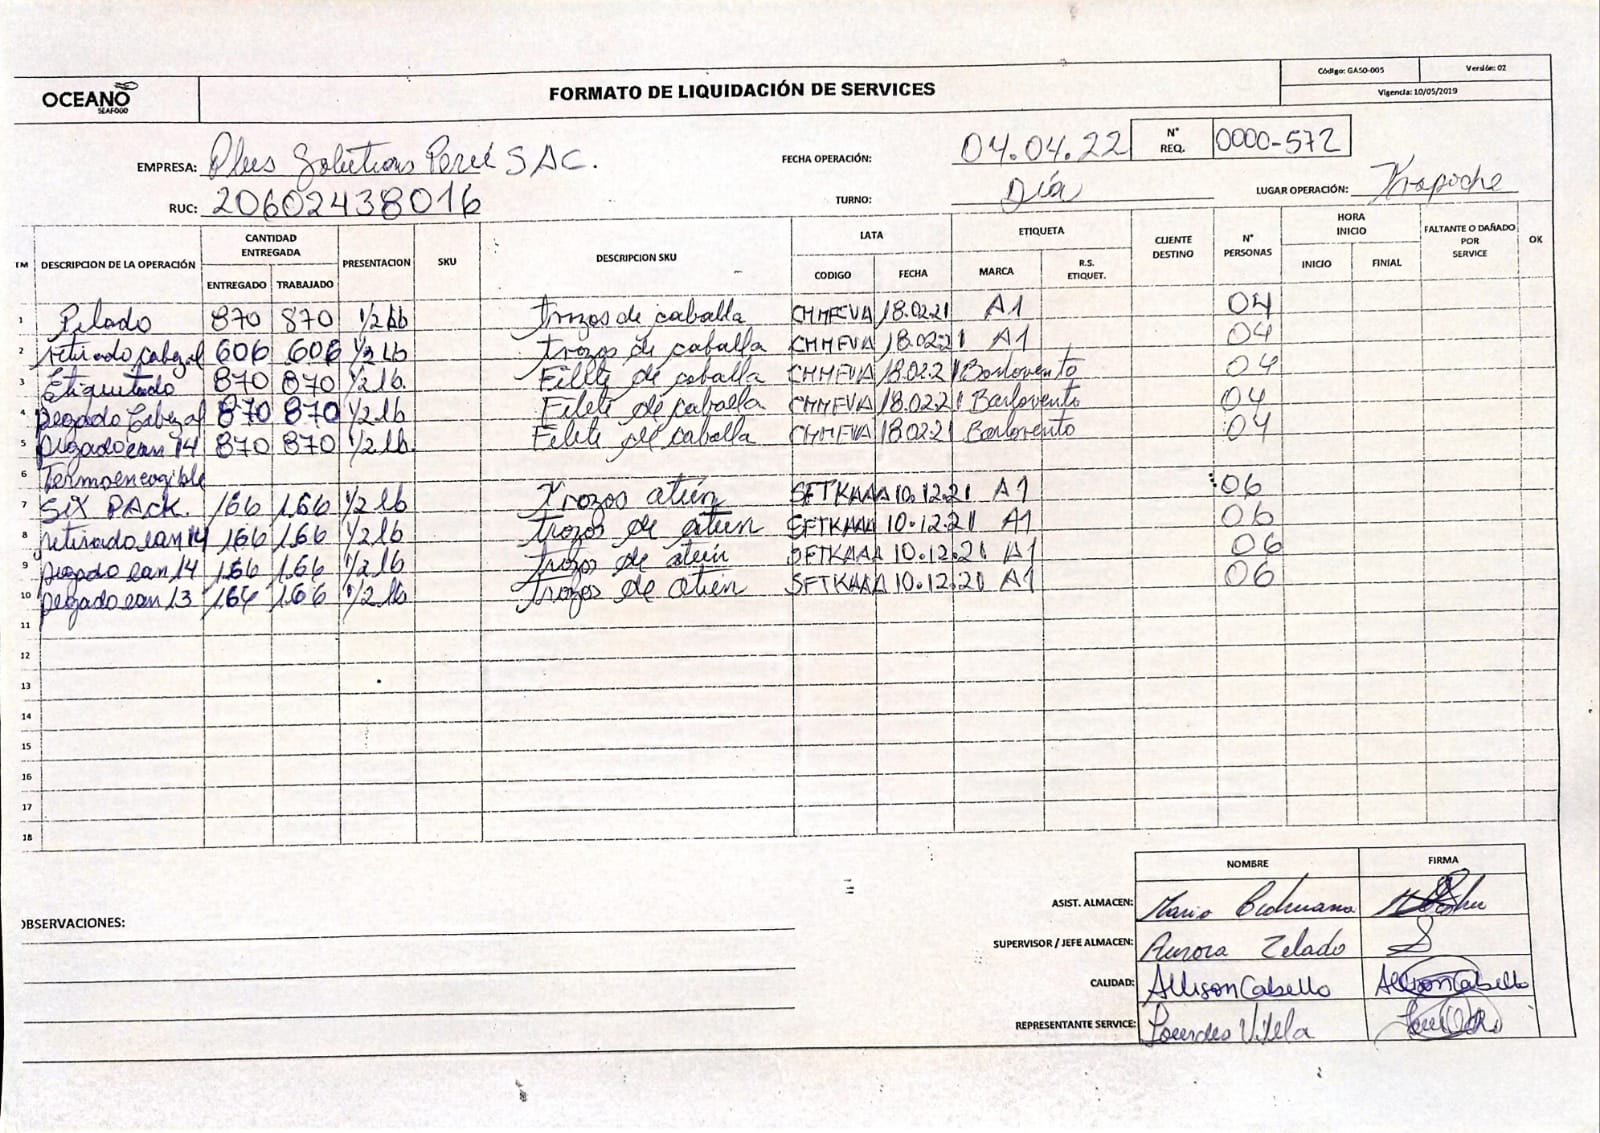 OCEANO
SEAFOOD
FORMATO DE LIQUIDACIÓN DE SERVICES
Código: GASO-005 Versión: 02
Vigencia: 10/05/2019
EMPRESA: Plus Solutions Perú SAC.
FECHA OPERACIÓN: 04.04.22
N° REQ. 0000-572
RUC: 20602438016
TURNO: Día
LUGAR OPERACIÓN:
ITM DESCRIPCION DE LA OPERACIÓN CANTIDAD ENTREGADA PRESENTACION SKU DESCRIPCION SKU LATA ETIQUETA CLIENTE DESTINO N° PERSONAS HORA INICIO FALTANTE O DAÑADO POR SERVICE OK
ENTREGADO TRABAJADO CODIGO FECHA MARCA R.S. ETIQUET. INICIO FINIAL
1 Pelado 870 870 1/2 lb trozos de caballa CHMFVA 18.02.21 A1 04
2 retirado Cabezal 606 606 1/2 Lb trozos de caballa CHMFVA 18.02.21 A1 04
3 Etiquetado 870 870 1/2 lb. Filete de caballa CHMFVA 18.02.21 Barlovento 04
4 pegado Cabezal 870 870 1/2 lb Filete de caballa CHMFVA 18.02.21 Barlovento 04
5 pegado ean 14 870 870 1/2 lb. Filete de caballa CHMFVA 18.02.21 Barlovento 04
6 Termoencogible
7 SIX PACK. 166 166 1/2 lb Trozos atún SFTKAAA 10.12.21 A1 06
8 retirado ean 14 166 166 1/2 lb trozos de atún SFTKAAA 10.12.21 A1 06
9 pegado ean 14 166 166 1/2 lb trozos de atún SFTKAAA 10.12.21 A1 06
10 pegado ean 13 166 166 1/2 lb trozos de atún SFTKAAA 10.12.21 A1 06
11
12
13
14
15
16
17
18
NOMBRE FIRMA
OBSERVACIONES:
ASIST. ALMACEN: Mario
SUPERVISOR / JEFE ALMACEN: Aurora Zelado
CALIDAD: Allison Cabello Allison Cabello
REPRESENTANTE SERVICE: Lourdes Vilela